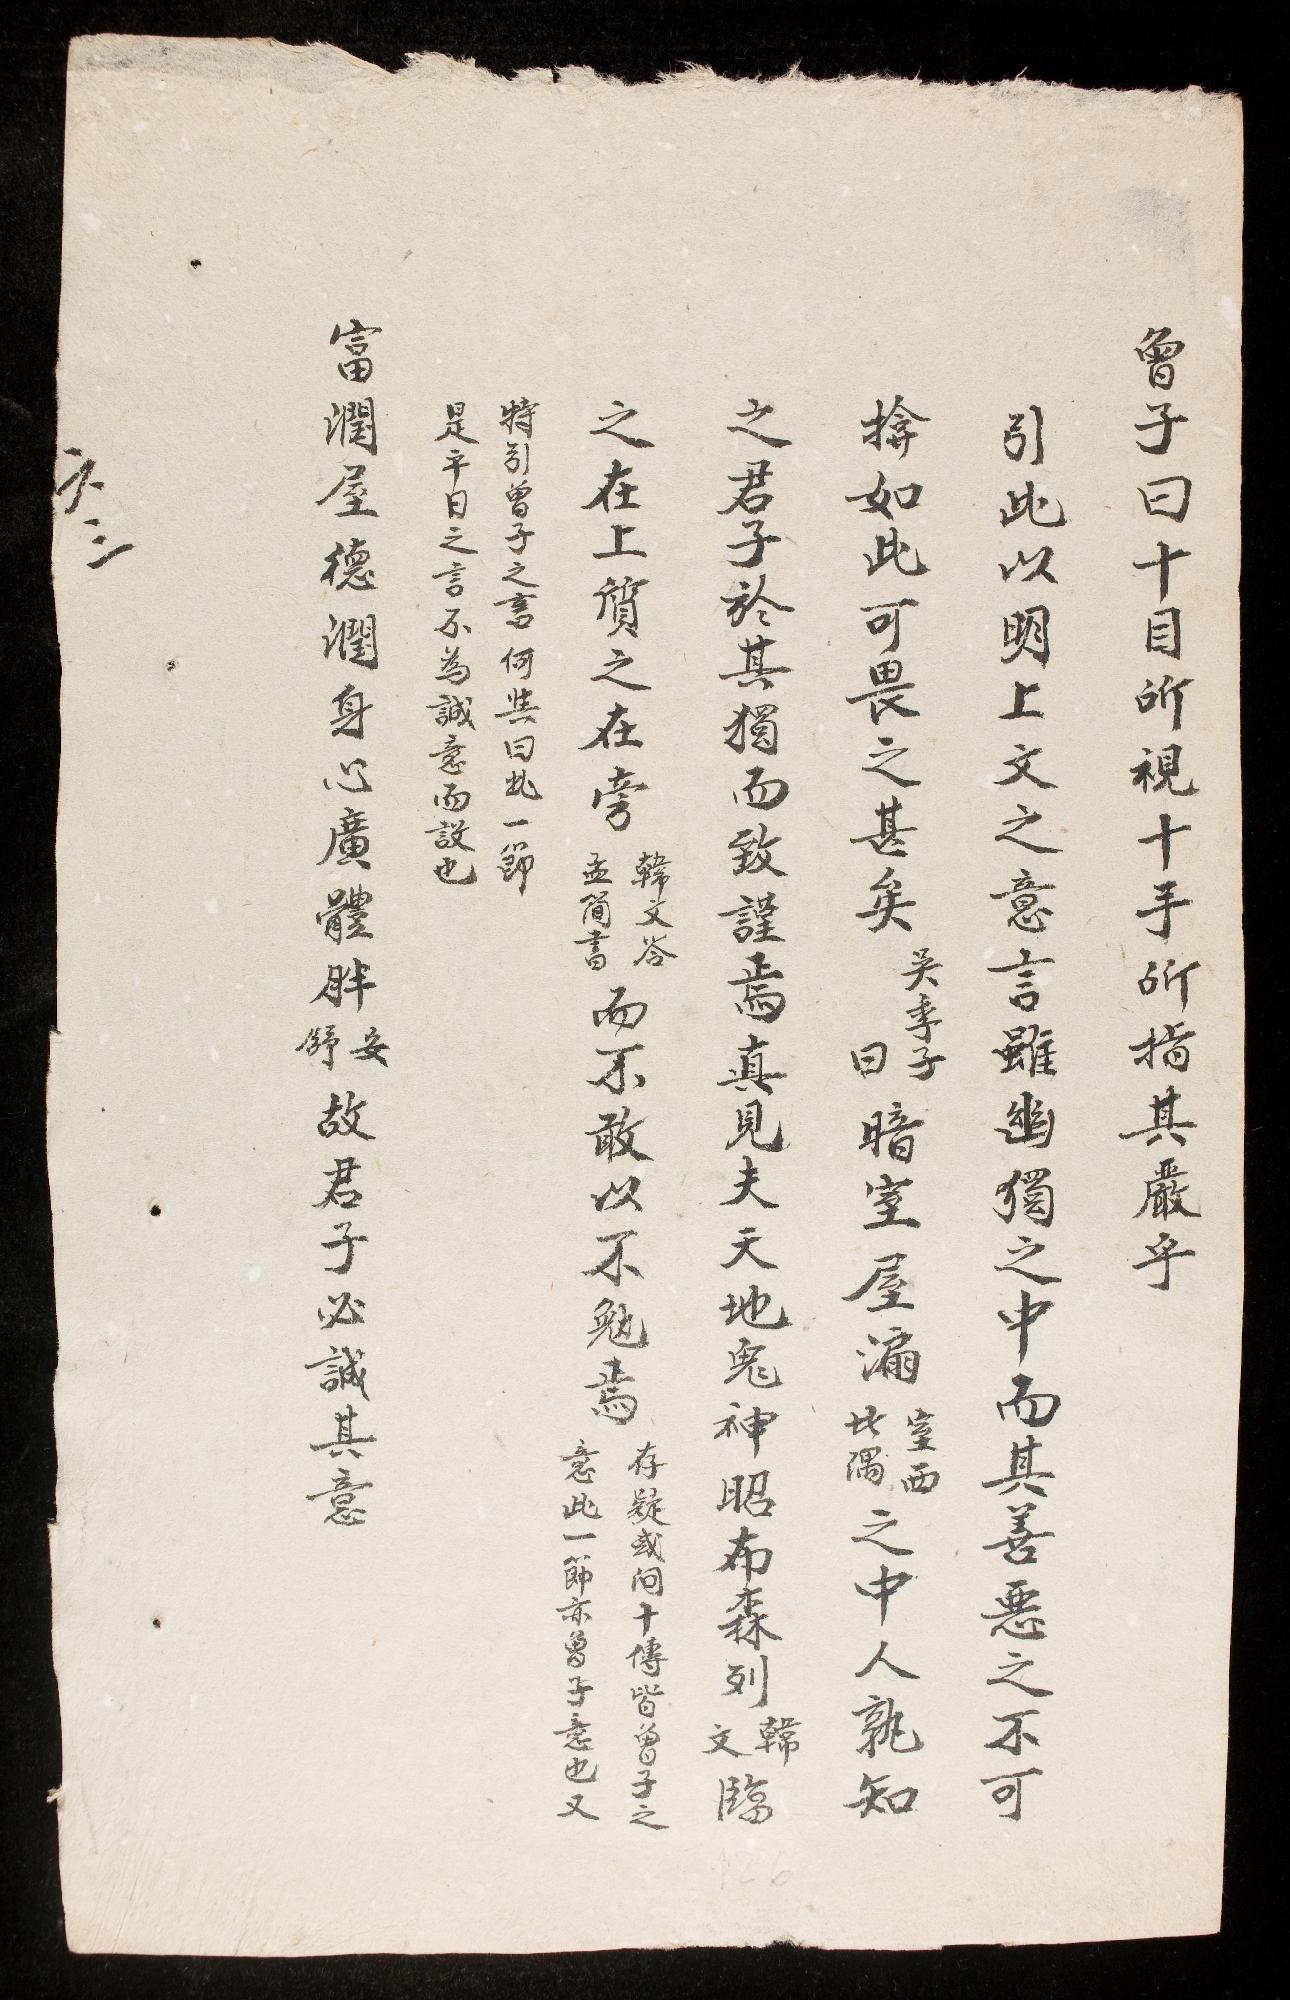 曾子曰十目所視十手所指其嚴乎
引此以明上文之意言雖幽獨之中而其善惡之不可
揜如此可畏之甚矣
吴季子
曰
暗室屋漏
室西
北隅
之中人孰知
之君子於其獨而致謹焉真見夫天地鬼神昭布森列
韓
文
臨
之在上質之在旁
韓文答
孟簡書
而不敢以不勉焉
存疑或问十傳皆曾子之
意此一節亦曾子意也又
特引曾子之言何㢤曰此一節
是平日之言不為誠意而設也
富潤屋德潤身心廣體胖
安
舒
故君子必誠其意
三
126